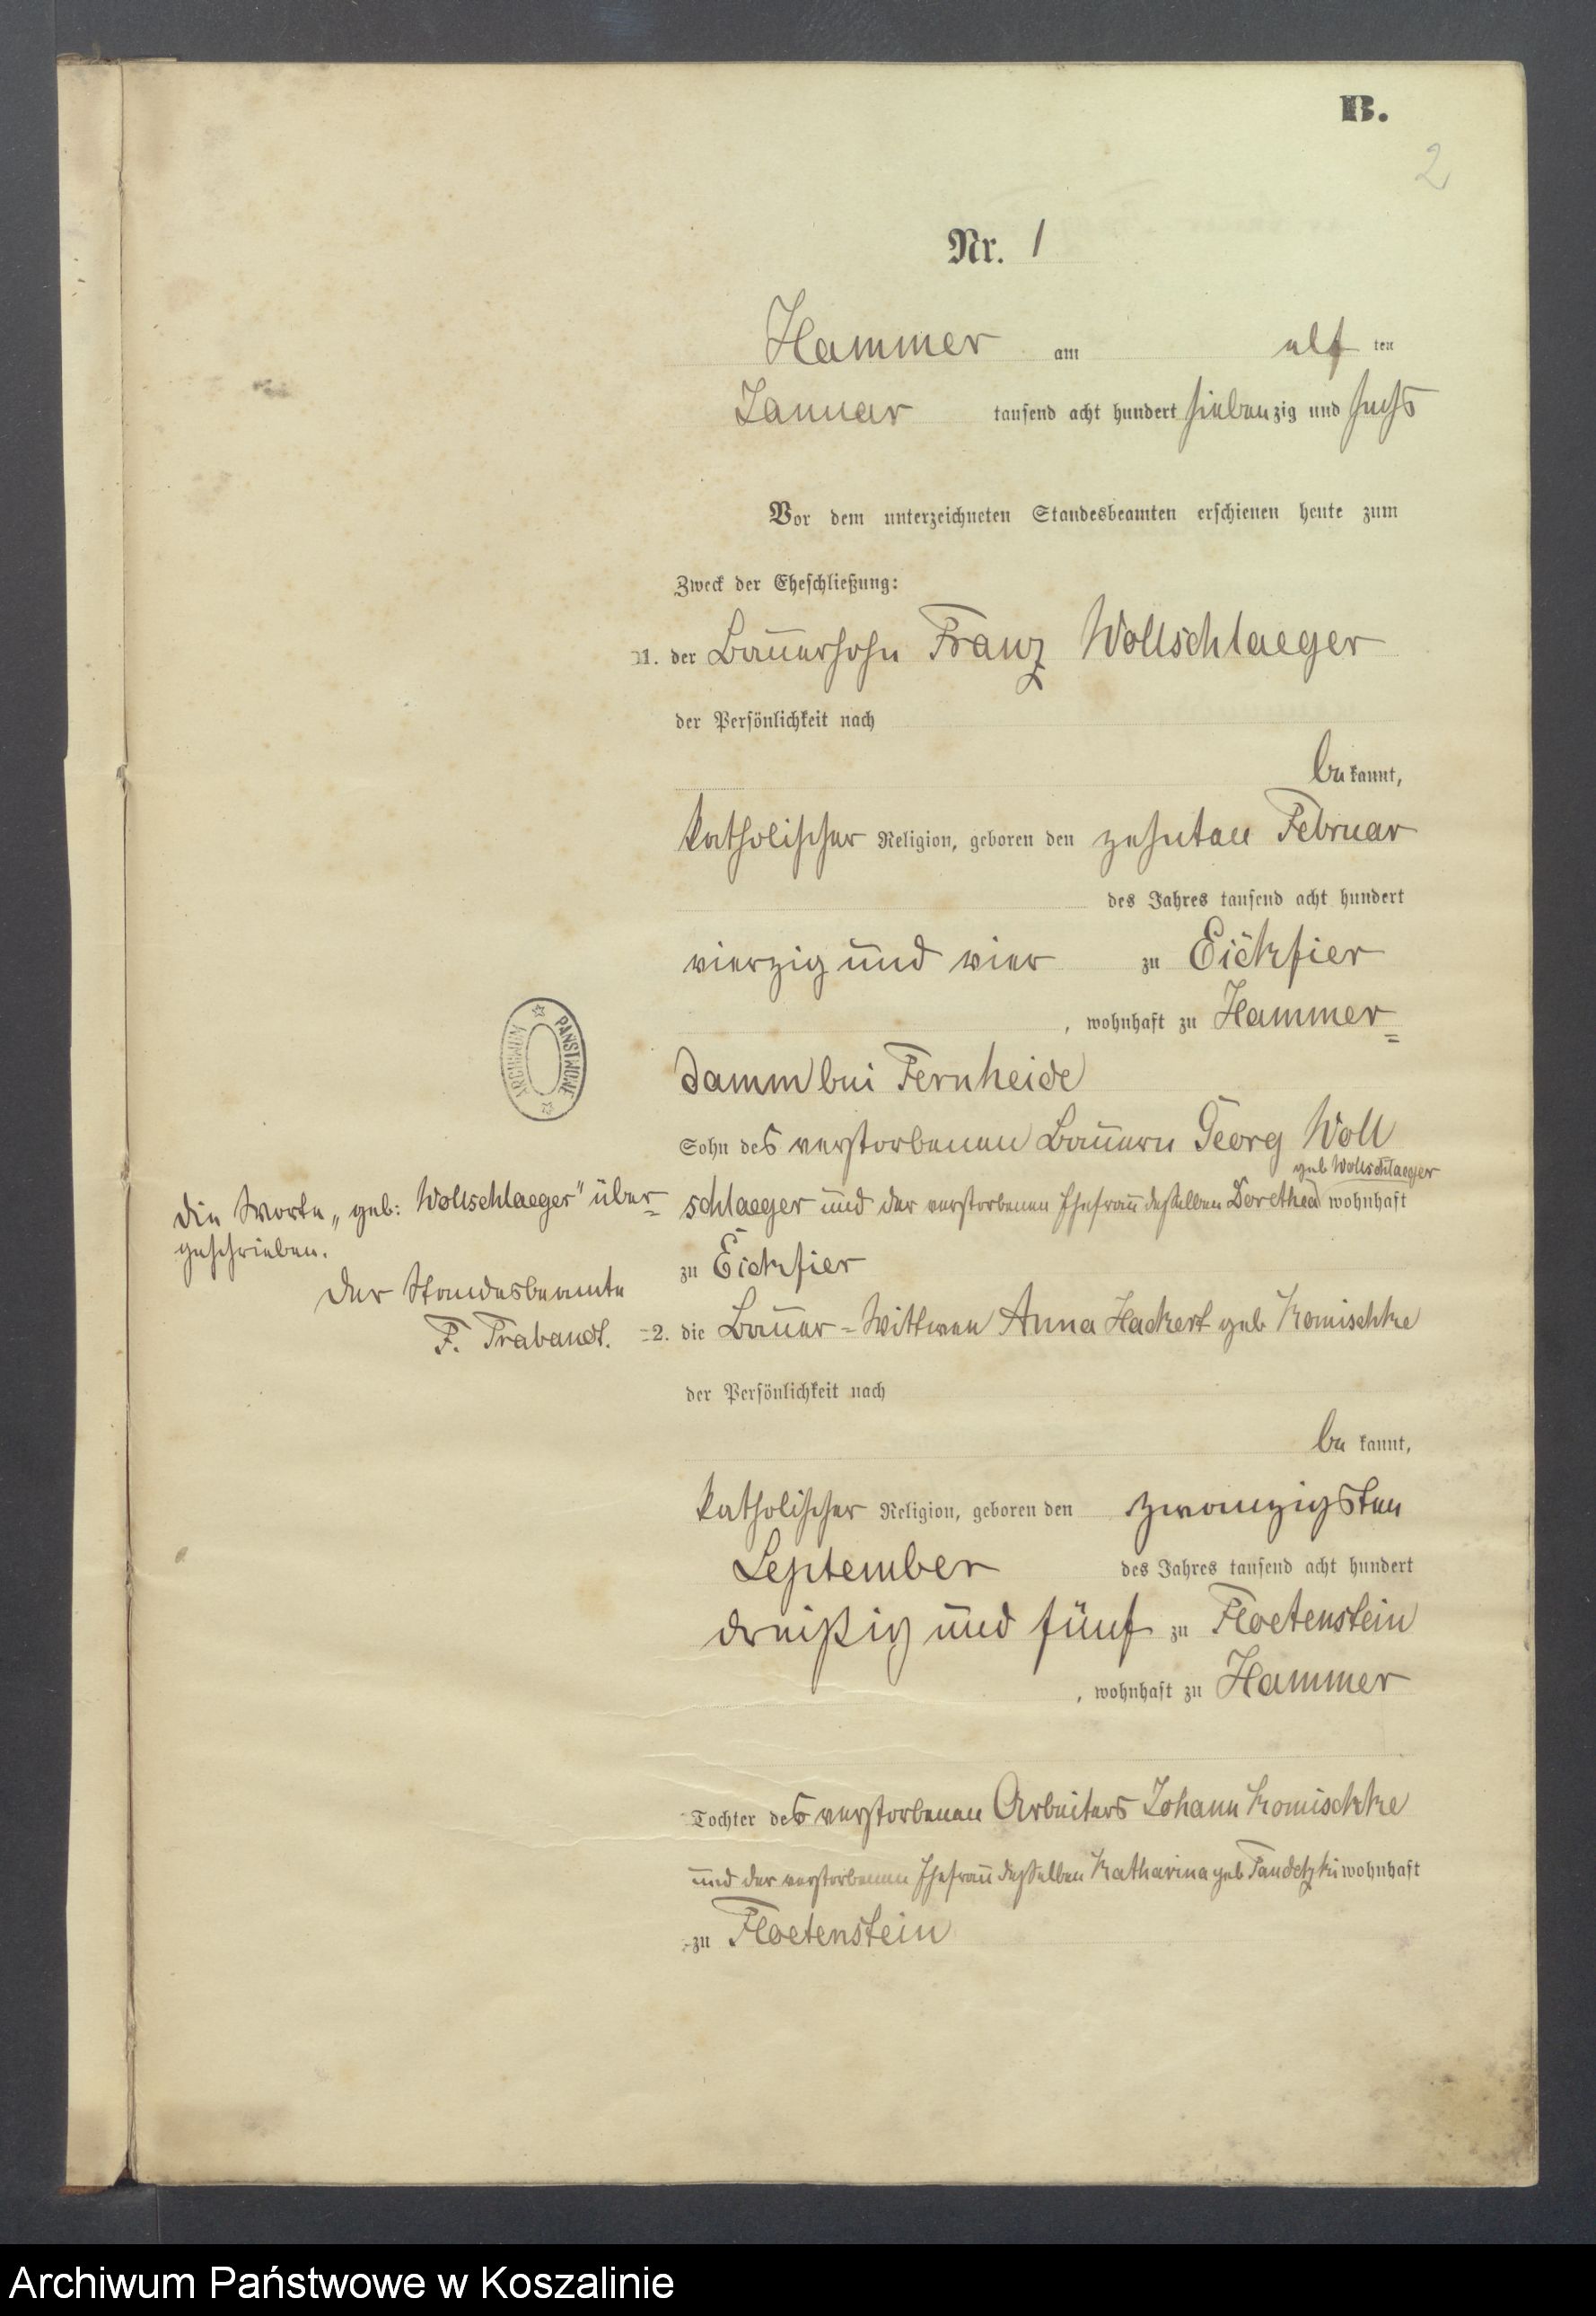 B.
2
Nr. 1
Hammer am elf ten
Januar tausend acht hundert siebenzig und sechs
Vor dem unterzeichneten Standesbeamten erschienen heute zum
Zweck der Eheschließung:
1. der Bauersohn Franz Wollschlaeger
der Persönlichkeit nach
be kannt,
katholischer Religion, geboren den zehnten Februar
des Jahres tausend acht hundert
vierzig und vier zu Eickfier
, wohnhaft zu Hammer=
damm bei Fernheide
Sohn des verstorbenen Bauern Georg Woll
geb Wollschlaeger
schlaeger und der verstorbenen Ehefrau desselben Dorethea wohnhaft
zu Eickfier
Die Worte „geb: Wollschlaeger" über=
geschrieben.
Der Standesbeamte
F. Prabandt.
2. die Bauer=Wittwe Anna Hackert geb Komischke
der Persönlichkeit nach
be kannt,
katholischer Religion, geboren den zwanzigsten
September des Jahres tausend acht hundert
dreißig und fünf zu Floetenstein
, wohnhaft zu Hammer
Tochter des verstorbenen Arbeiters Johann Komischke
und der verstorbenen Ehefrau desselben Katharina geb Pandetzki wohnhaft
zu Floetenstein
ARCHIWUM PAŃSTWOWE
Archiwum Państwowe w Koszalinie